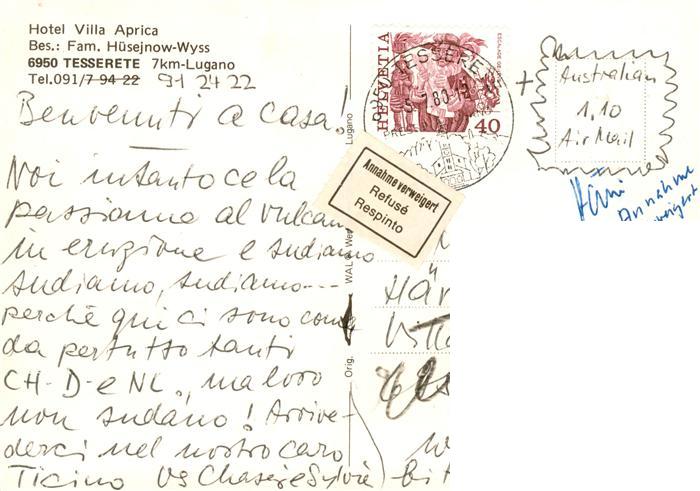 Hotel Villa Aprica
Bes.: Fam. Hüsejnow-Wyss
6950 TESSERETE 7km-Lugano
Tel.091/7 94 22 91 24 22
Benvenuti a casa!
Noi intanto ce la
passiamo al vulcan
in eruzione e sudiamo
sudiamo, sudiamo---
perchè qui ci sono come
da pertutto tanti
CH-D-e NL, ma loro
non sudano! Arrive-
derci nel nostro caro
Ticino
Lugano
Orig.
HELVETIA
40
TESSERETE
Annahme verweigert
Refusé
Respinto
+
Australian
1.10
Air Mail
Annahme
weigert
Här